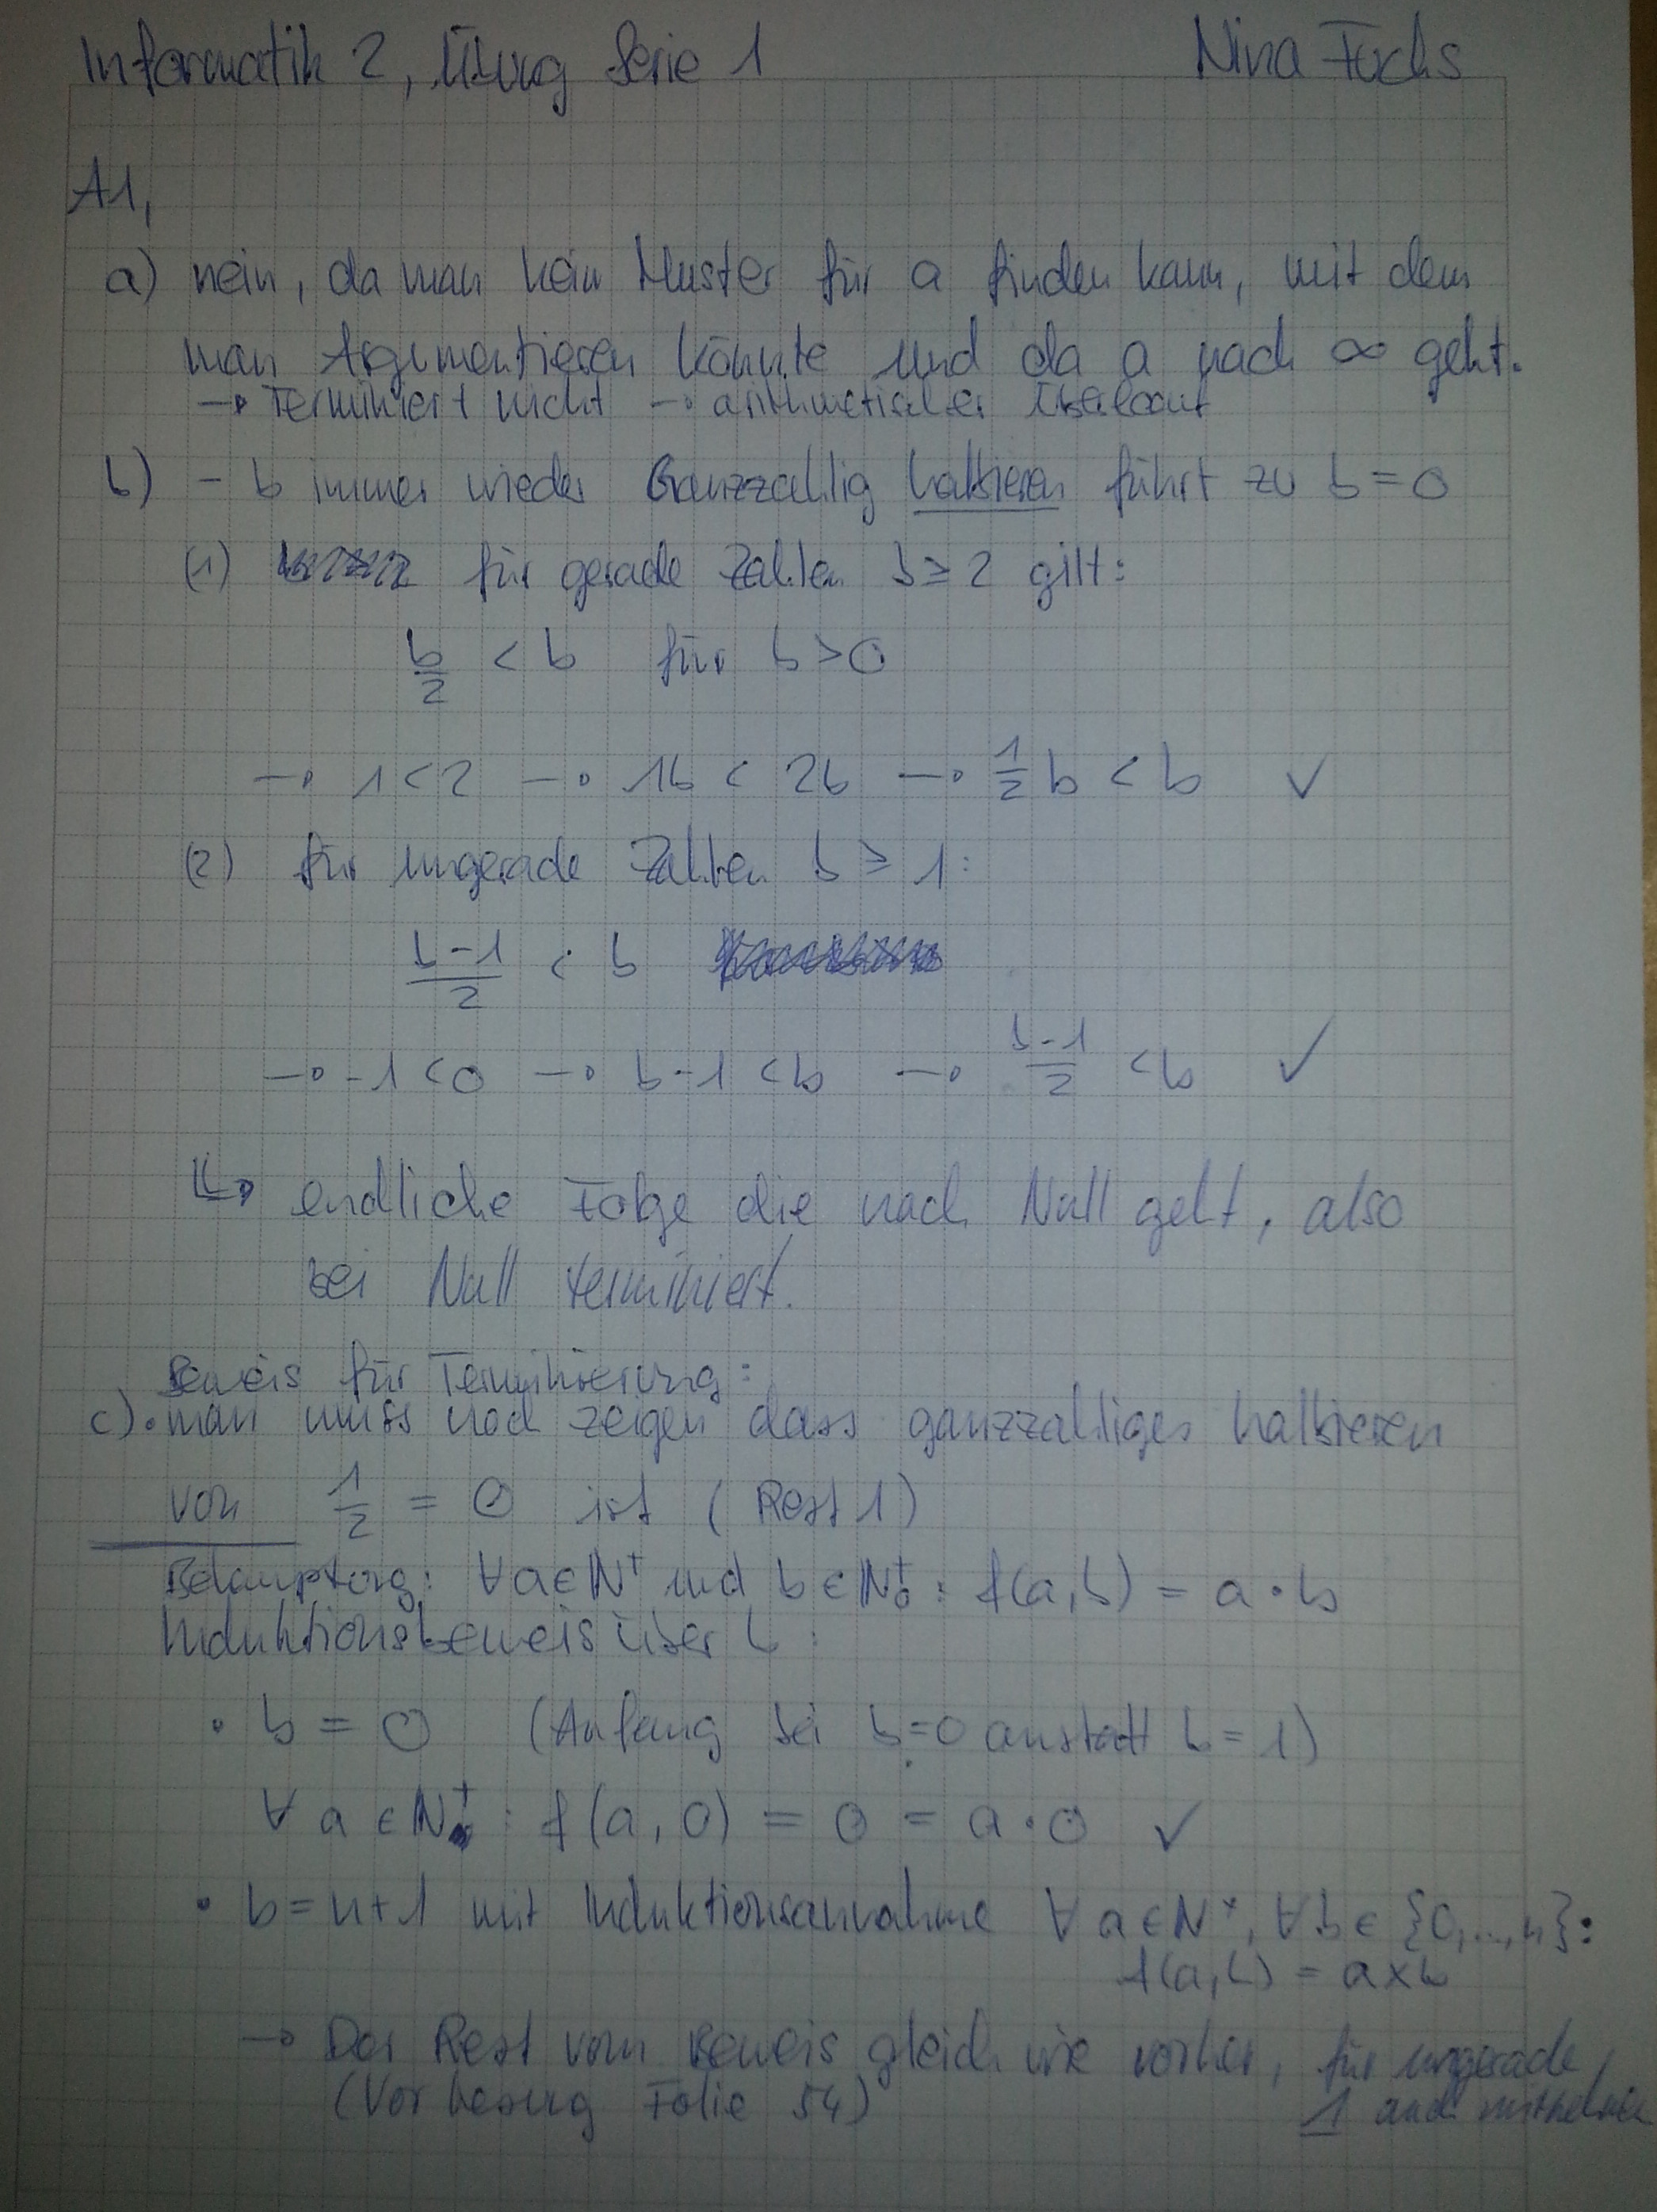 Informatik 2, Übung Serie 1 Nina Fuchs
A1,
a) nein, da man kein Muster für a finden kann, mit dem
man Argumentieren könnte und da a nach ∞ geht.
→ Terminiert nicht → arithmetischer Überlauf
b) - b immer wieder Ganzzahlig halbieren führt zu b = 0
(1) für gerade Zahlen b ≥ 2 gilt:
b/2 < b für b > 0
→ 1 < 2 → 1b < 2b → 1/2 b < b ✓
(2) für ungerade Zahlen b ≥ 1:
(b-1)/2 < b
→ -1 < 0 → b-1 < b → (b-1)/2 < b ✓
↳ endliche Folge die nach Null geht, also
bei Null terminiert.
Beweis für Terminierung:
c) • man muss noch zeigen dass ganzzahliges halbieren
von 1/2 = 0 ist (Rest 1)
Behauptung: ∀a∈N⁺ und b∈N₀⁺: f(a,b) = a·b
Induktionsbeweis über b:
• b = 0 (Anfang bei b=0 anstatt b=1)
∀ a ∈ N⁺: f(a,0) = 0 = a·0 ✓
• b = n+1 mit Induktionsannahme ∀ a∈N⁺, ∀b∈ {0,...,n}:
f(a,b) = a×b
→ Der Rest vom Beweis gleich wie vorher, für ungerade
(Vorlesung Folie 54) 1 auch